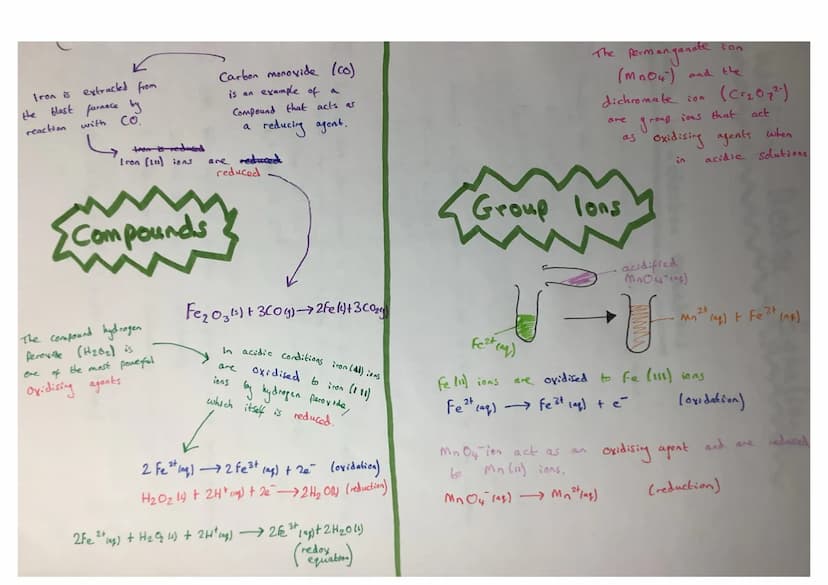 Carbon monoxide (CO)
is an example of a
compound that acts as
a reducing agent.
Iron is extracted from
the blast furnace by
reaction with CO.
Iron is reduced
Iron (III) ions are reduced
reduced
Compounds
Fe₂O₃(s) + 3CO(g) → 2Fe(s) + 3CO₂(g)
The compound hydrogen
peroxide (H₂O₂) is
one of the most powerful
oxidising agents
In acidic conditions iron (II) ions
are oxidised to iron (III)
ions by hydrogen peroxide,
which itself is reduced.
2Fe²⁺(aq) → 2Fe³⁺(aq) + 2e⁻ (oxidation)
H₂O₂(l) + 2H⁺(aq) + 2e⁻ → 2H₂O(l) (reduction)
2Fe²⁺(aq) + H₂O₂(l) + 2H⁺(aq) → 2Fe³⁺(aq) + 2H₂O(l)
(redox
equation)
The permanganate ion
(MnO₄⁻) and the
dichromate ion (Cr₂O₇²⁻)
are group ions that act
as oxidising agents when
in acidic solutions
Group Ions
acidified
MnO₄⁻(aq)
Fe²⁺(aq)
Mn²⁺(aq) + Fe³⁺(aq)
Fe(II) ions are oxidised to Fe(III) ions
Fe²⁺(aq) → Fe³⁺(aq) + e⁻ (oxidation)
MnO₄⁻ ion act as an oxidising agent and are reduced
to Mn(II) ions.
MnO₄⁻(aq) → Mn²⁺(aq) (reduction)